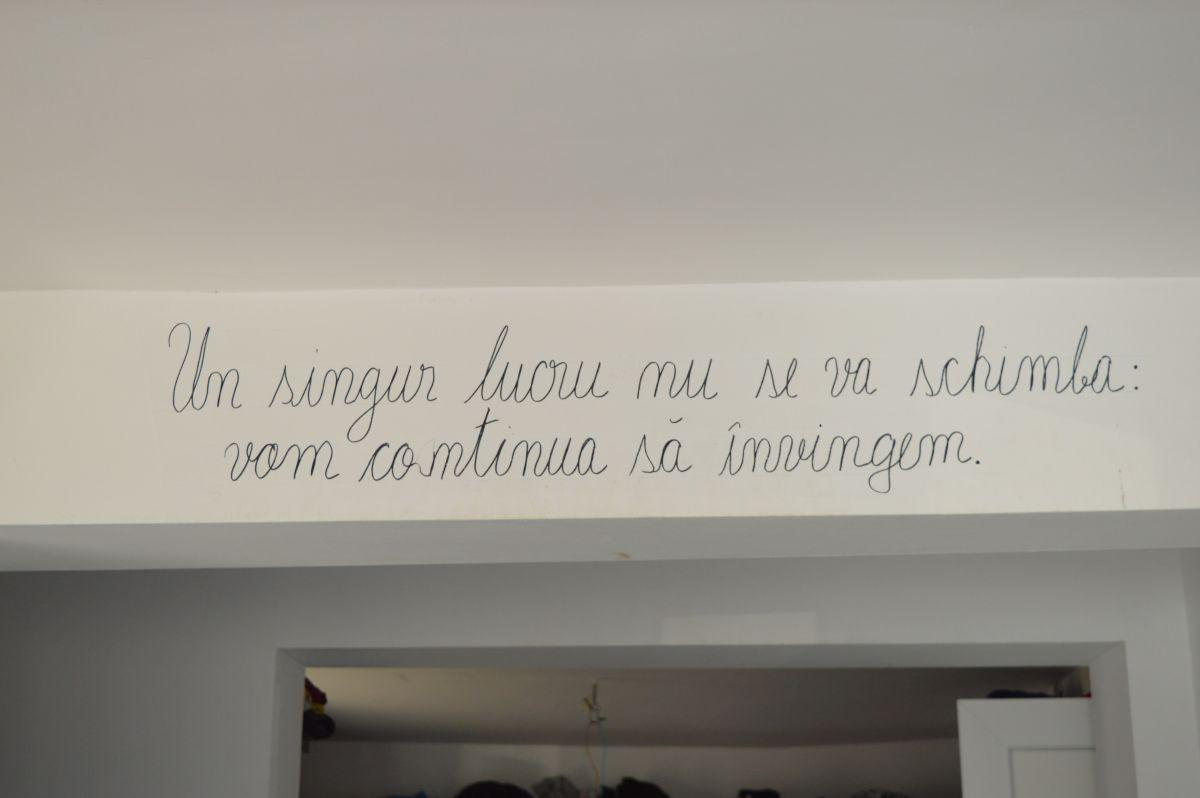 Un singur lucru nu se va schimba:
vom continua să învingem.